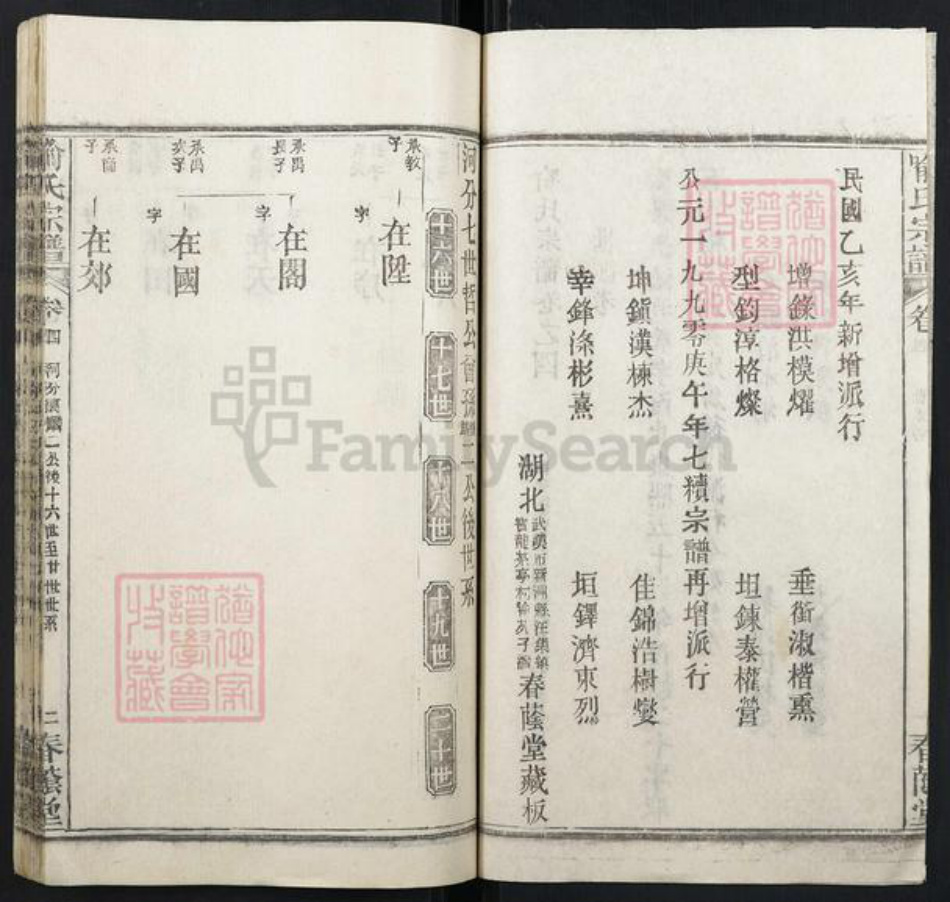 民國乙亥年新增派行
增錄淇模燿
垂衡淑楷熏
型鈞淳格燦
坦鍊泰權營
公元一九九零庚午年七續宗譜再增派行
坤鎮漢棟杰
佳錦浩樹燮
幸鋒滌彬熹
垣鐸濟東烈
湖北
武漢市新洲縣汪集鎮
春蔭堂藏板
喻氏宗譜
卷
春蔭堂
河分七世哲公曾孫
二公後世系
十六世
十七世
十八世
十九世
二十世
承教
子
在陞
字
承禹
長子
在閣
字
承禹
次子
在國
字
承
子
在郊
喻氏宗譜
卷四
二公後十六世至廿世世系
二
春蔭堂
猶他家
譜學會
收藏
猶他家
譜學會
收藏
FamilySearch